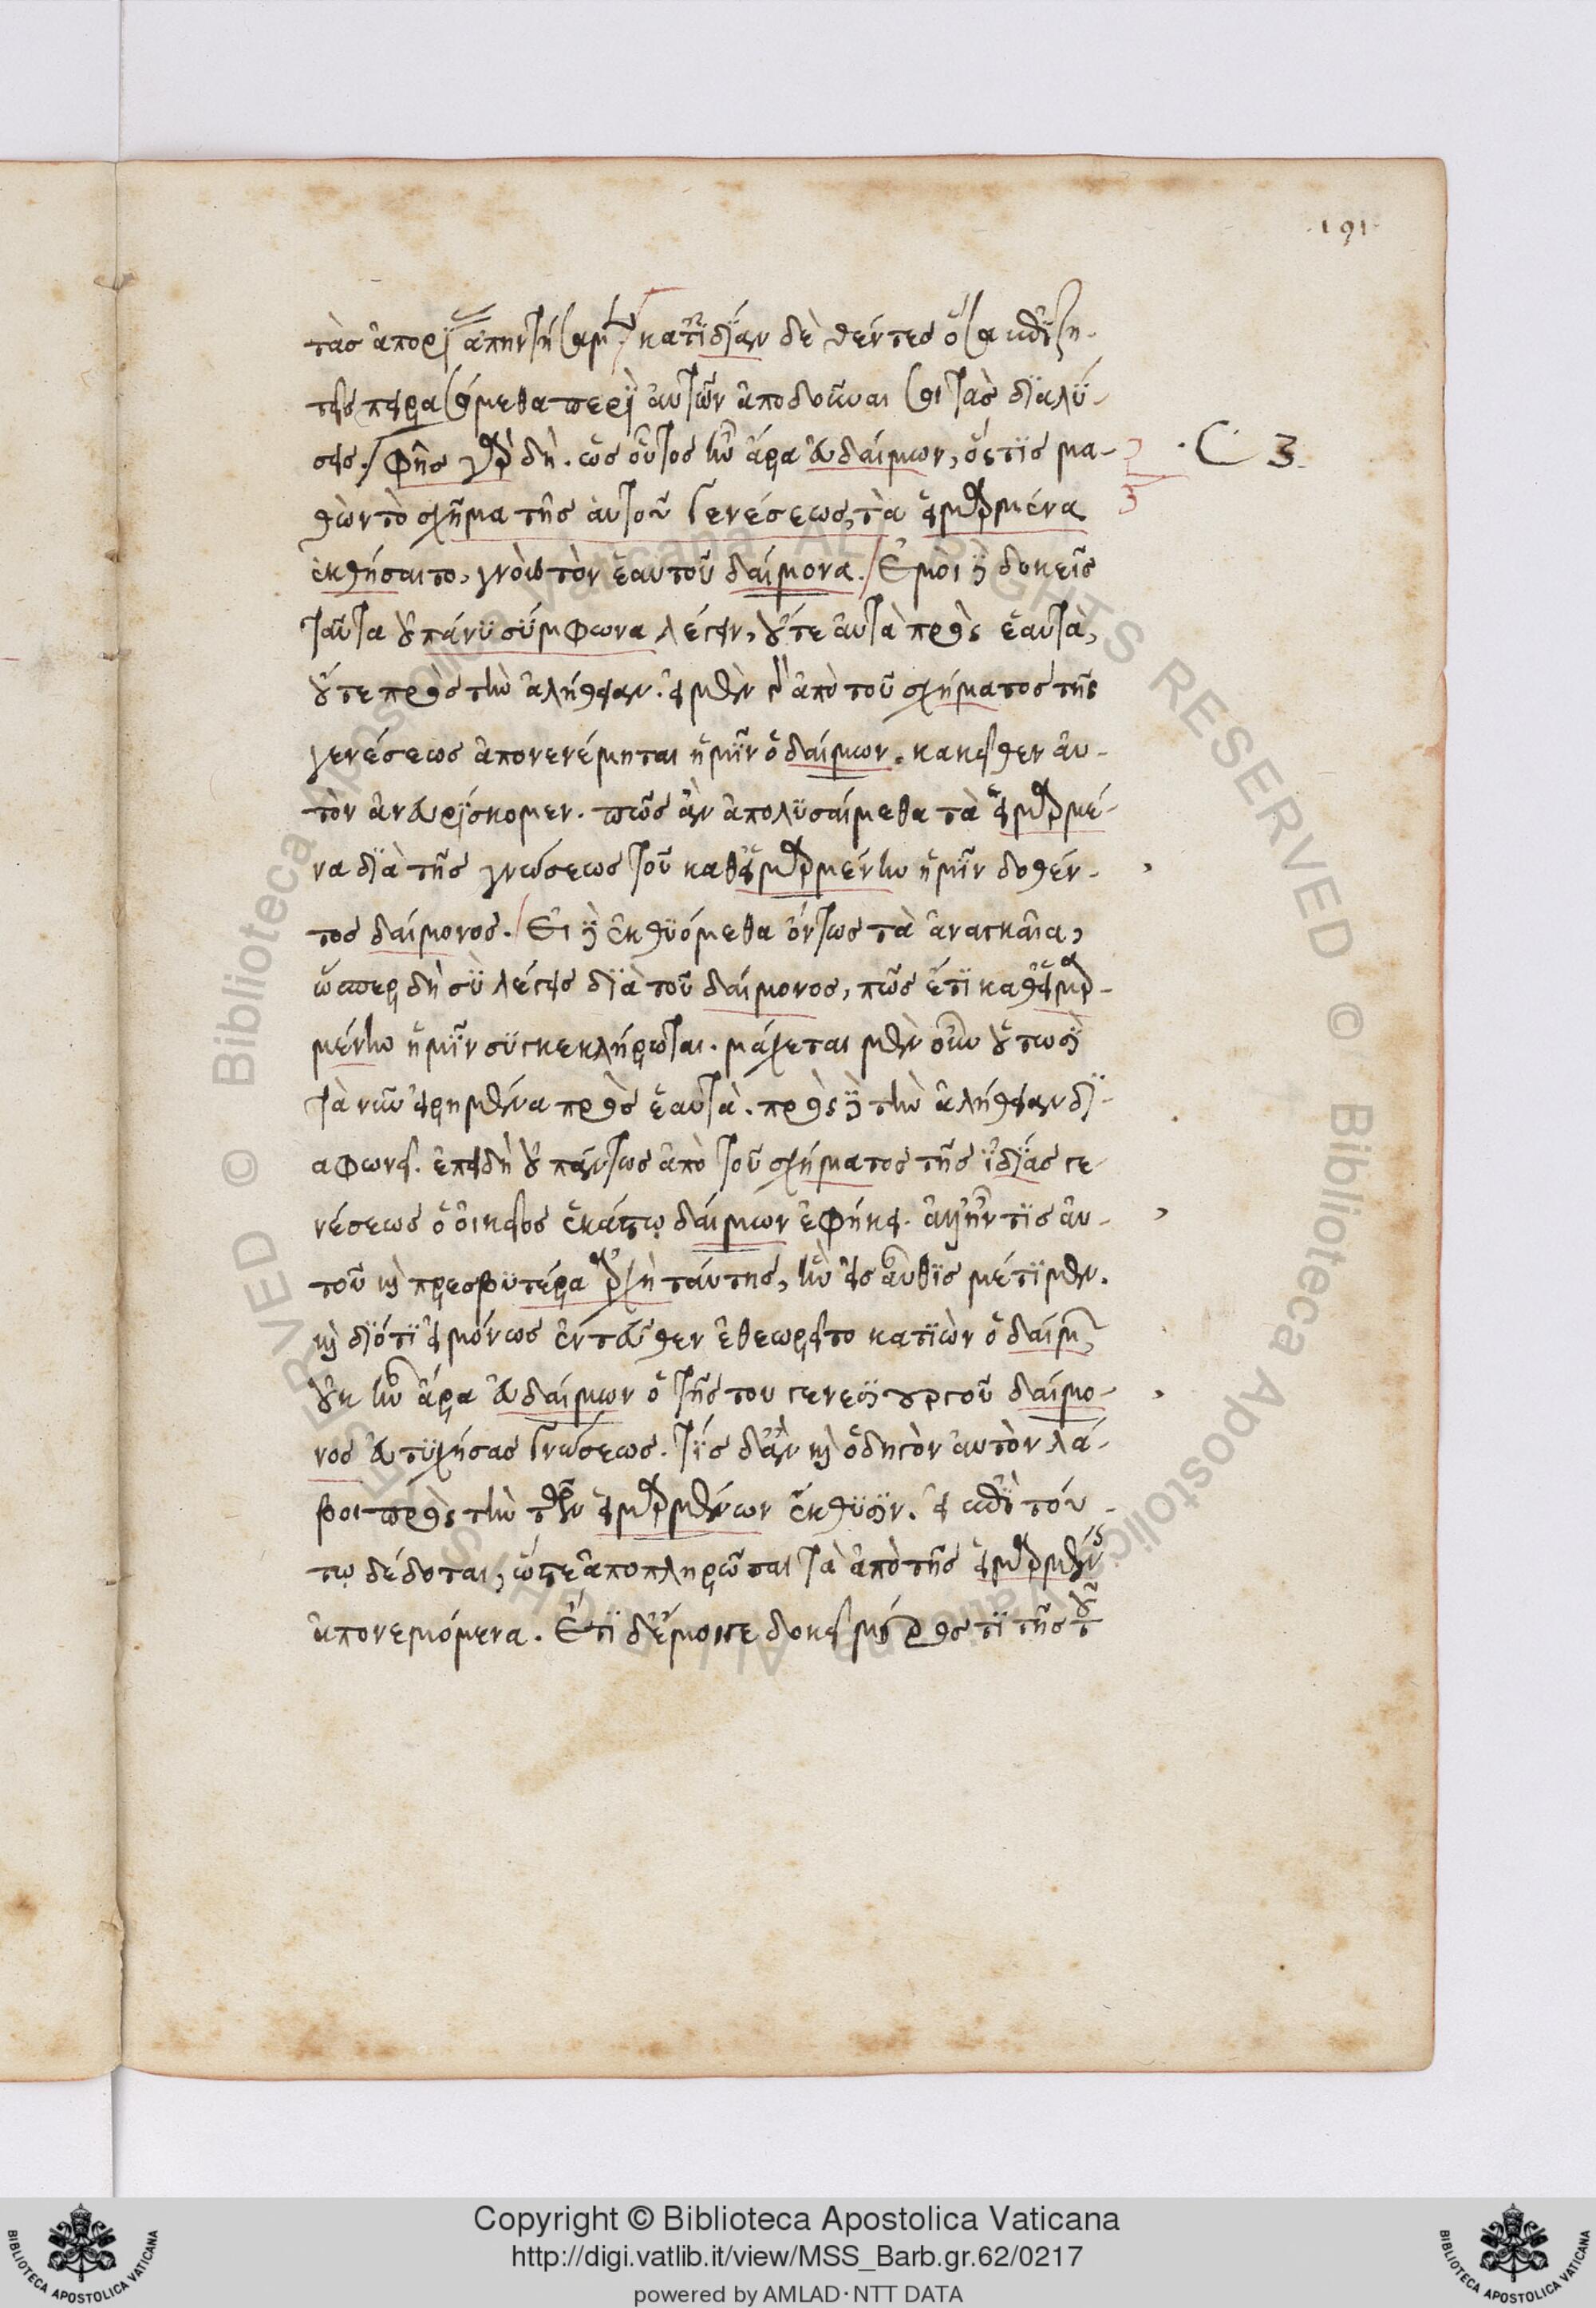 191
τὰς ἀπορίας ἀπηντήσαμεν. κατ' ἰδίαν δὲ θέντες ὅσα καὶ ζη-
τεῖς πειρασόμεθα περὶ αὐτῶν ἀποδοῦναι σοι τὰς διαλύ-
σεις. φῂς γὰρ δὴ. ὡς οὗτος ἦν ἄρα εὐδαίμων, ὅστις μα-
θὼν τὸ σχῆμα τῆς αὐτοῦ γενέσεως, τὰ εἱμαρμένα
ἐκθήσαιτο, γνοὺς τὸν ἑαυτοῦ δαίμονα. Ἐμοὶ δὲ δοκεῖς
ταῦτα οὐ πάνυ σύμφωνα λέγειν, οὔτε αὐτὰ πρὸς ἑαυτὰ,
οὔτε πρὸς τὴν ἀλήθειαν. εἰ μὲν γὰρ ἀπὸ τοῦ σχήματος τῆς
γενέσεως ἀπονενέμηται ἡμῖν ὁ δαίμων. κἀκεῖθεν αὐ-
τὸν ἀνευρίσκομεν. πῶς ἂν ἀπολυσαίμεθα τὰ εἱμαρμέ-
να διὰ τῆς γνώσεως τοῦ καθ' εἱμαρμένην ἡμῖν δοθέν-
τος δαίμονος. Εἰ δὲ ἐκθυόμεθα ὄντως τὰ ἀναγκαῖα,
ὥσπερ δὴ σὺ λέγεις διὰ τοῦ δαίμονος, πῶς ἔτι καθ' εἱμαρ-
μένην ἡμῖν συγκεκλήρωται. μάχεται μὲν οὖν οὕτωσὶ
τὰ νῦν εἰρημένα πρὸς ἑαυτὰ. πρὸς δὲ τὴν ἀλήθειαν δι-
αφωνεῖ. ἐπειδὴ οὐ πάντως ἀπὸ τοῦ σχήματος τῆς ἰδίας γε-
νέσεως ὁ οἰκεῖος ἑκάστῳ δαίμων ἐφήκει. ἀλλ' ἦν τις αὐ-
τοῦ καὶ πρεσβυτέρα ἀρχὴ ταύτης, ἣν εἰς αὖθις μέτιμεν.
καὶ διότι εἰ μόνως ἐντεῦθεν ἐθεωρεῖτο κατιὼν ὁ δαίμων
οὐκ ἦν ἄρα εὐδαίμων ὁ τῆς του γενεσιουργοῦ δαίμο-
νος εὐτυχήσας γνώσεως. τίς δ' ἂν καὶ ὁδηγὸν αὐτὸν λά-
βοι πρὸς τὴν τῶν εἱμαρμένων ἔκθυσιν. εἰ καὶ τού-
τῳ δέδοται, ὥστε ἀποπληρῶσαι τὰ ἀπὸ τῆς εἱμαρμένης
ἀπονεμόμενα. Ἔτι δ' ἔμοιγε δοκεῖ μέρος τι τῆς
Copyright © Biblioteca Apostolica Vaticana
http://digi.vatlib.it/view/MSS_Barb.gr.62/0217
powered by AMLAD · NTT DATA